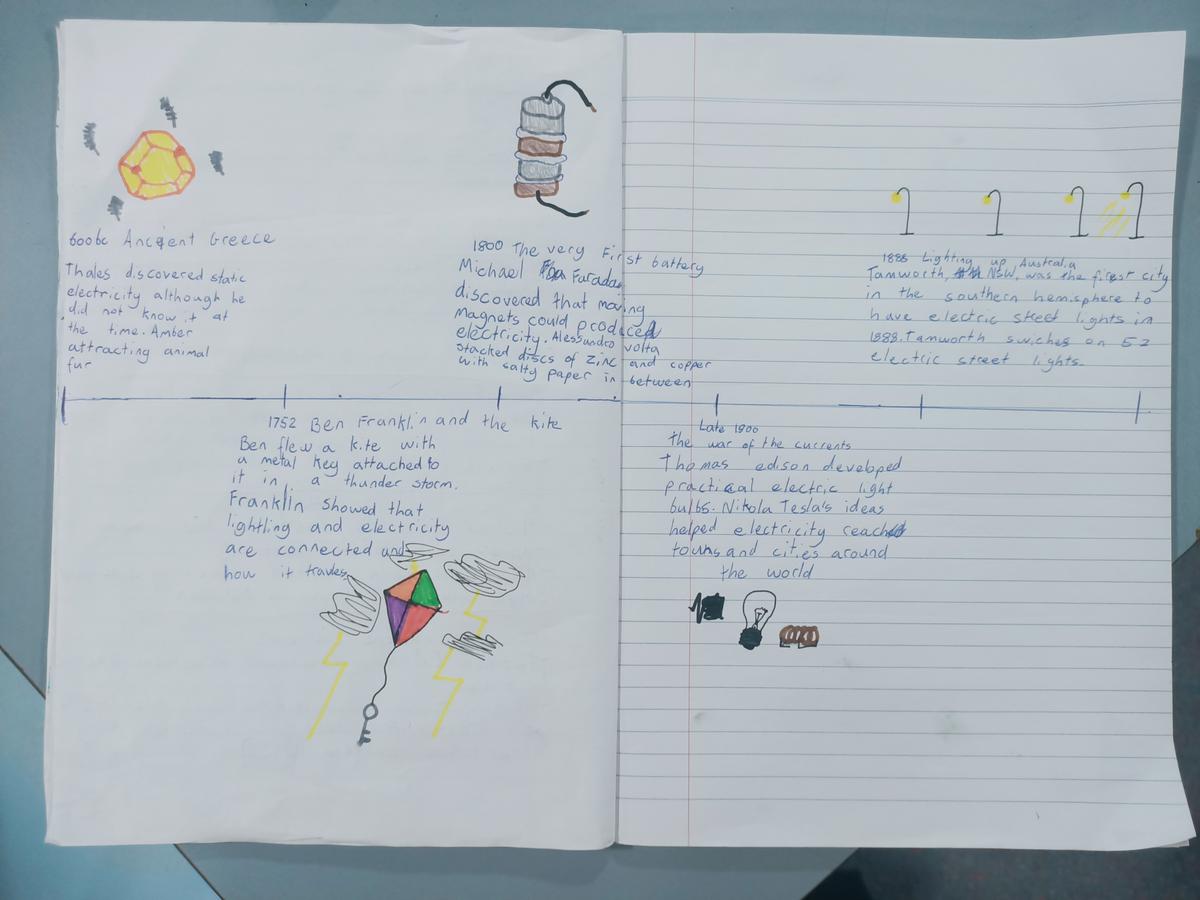 600bc Ancient Greece
Thales discovered static
electricity although he
did not know it at
the time. Amber
attracting animal
fur
1752 Ben Franklin and the kite
Ben flew a kite with
a metal key attached to
it in a thunder storm.
Franklin showed that
lightling and electricity
are connected and
how it travles
1800 The very First battery
Michael Faraday
discovered that moving
Magnets could produced
electricity. Alessandro volta
stacked discs of zinc and copper
with salty paper in between
Late 1800
the war of the currents
Thomas edison developed
practical electric light
bulbs. Nikola Tesla's ideas
helped electricity reach
towns and cities around
the world
1888 Lighting up Australia
Tamworth, NSW, was the first city
in the southern hemisphere to
have electric street lights in
1888. Tamworth swiches on 52
electric street lights.